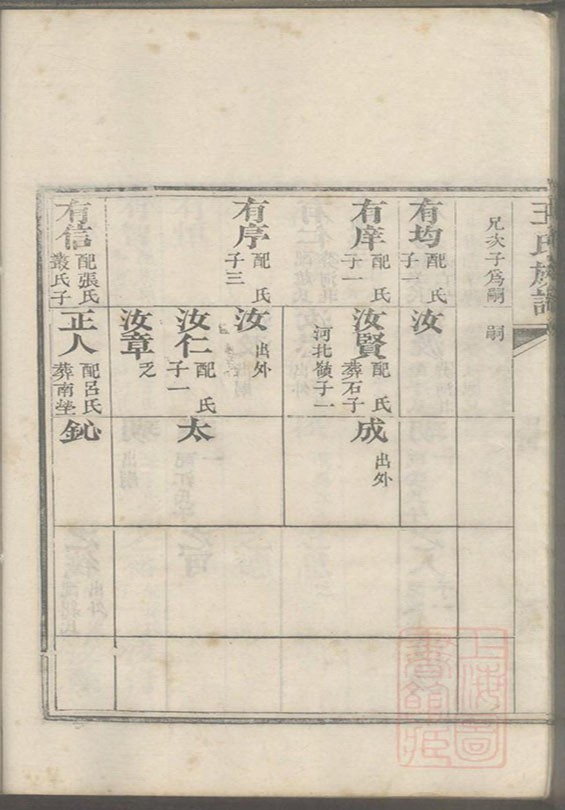 王氏族譜
兄次子爲嗣
嗣
有均 配 氏
子一
汝
有庠 配 氏
子一
汝賢 配 氏
葬石子
河北嶺子一
成 出外
有序 配 氏
子三
汝 出外
汝仁 配 氏
子一
太
汝章 乏
有信 配張氏
叢氏子
正人 配呂氏
葬南塋
鈊
上海圖
書館藏